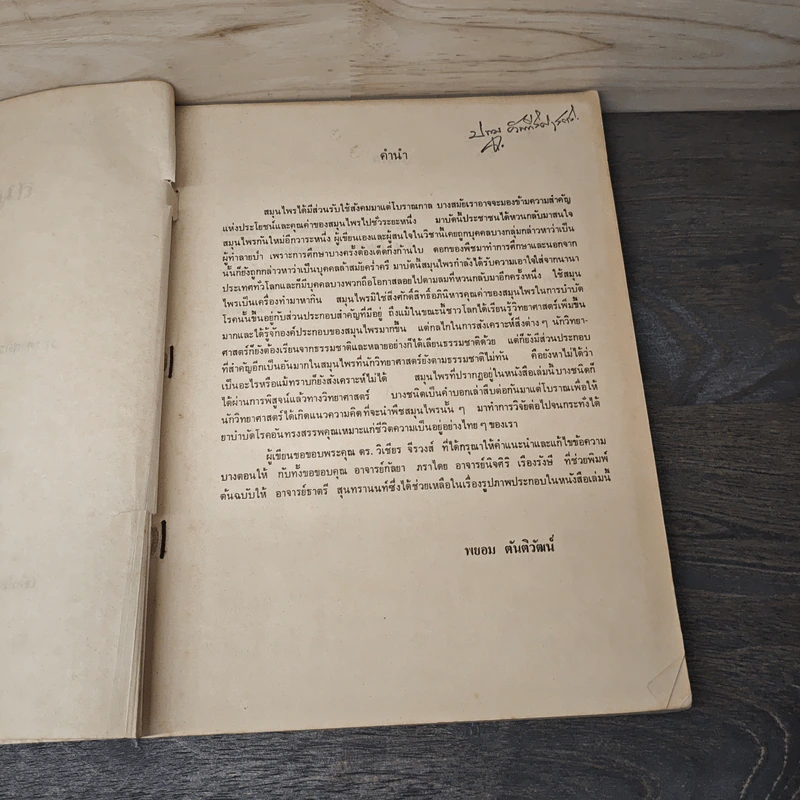 คำนำ
สมุนไพรได้มีส่วนรับใช้สังคมมาแต่โบราณกาล บางสมัยเราอาจจะมองข้ามความสำคัญ
แห่งประโยชน์และคุณค่าของสมุนไพรไปชั่วระยะหนึ่ง มาบัดนี้ประชาชนได้หวนกลับมาสนใจ
สมุนไพรกันใหม่อีกวาระหนึ่ง ผู้เขียนเองและผู้สนใจในวิชานี้เคยถูกบุคคลบางกลุ่มกล่าวหาว่าเป็น
ผู้ทำลายป่า เพราะการศึกษาบางครั้งต้องเด็ดกิ่งก้านใบ ดอกของพืชมาทำการศึกษาและนอกจาก
นั้นก็ยังถูกกล่าวหาว่าเป็นบุคคลล้าสมัยคร่ำครึ มาบัดนี้สมุนไพรกำลังได้รับความเอาใจใส่จากนานา
ประเทศทั่วโลกและก็มีบุคคลบางพวกถือโอกาสลอยไปตามลมที่หวนกลับมาอีกครั้งหนึ่ง ใช้สมุน
ไพรเป็นเครื่องทำมาหากิน สมุนไพรมิใช่สิ่งศักดิ์สิทธิ์อภินิหารคุณค่าของสมุนไพรในการบำบัด
โรคนั้นขึ้นอยู่กับส่วนประกอบสำคัญที่มีอยู่ ถึงแม้ในขณะนี้ชาวโลกได้เรียนรู้วิทยาศาสตร์เพิ่มขึ้น
มากและได้รู้จักองค์ประกอบของสมุนไพรมากขึ้น แต่กลไกในการสังเคราะห์สิ่งต่าง ๆ นักวิทยา-
ศาสตร์ก็ยังต้องเรียนจากธรรมชาติและหลายอย่างก็ได้เลียนธรรมชาติด้วย แต่ก็ยังมีส่วนประกอบ
ที่สำคัญอีกเป็นอันมากในสมุนไพรที่นักวิทยาศาสตร์ยังตามธรรมชาติไม่ทัน คือยังหาไม่ได้ว่า
เป็นอะไรหรือแม้ทราบก็ยังสังเคราะห์ไม่ได้ สมุนไพรที่ปรากฏอยู่ในหนังสือเล่มนี้บางชนิดก็
ได้ผ่านการพิสูจน์แล้วทางวิทยาศาสตร์ บางชนิดเป็นคำบอกเล่าสืบต่อกันมาแต่โบราณเพื่อให้
นักวิทยาศาสตร์ได้เกิดแนวความคิดที่จะนำพืชสมุนไพรนั้น ๆ มาทำการวิจัยต่อไปจนกระทั่งได้
ยาบำบัดโรคอันทรงสรรพคุณเหมาะแก่ชีวิตความเป็นอยู่อย่างไทย ๆ ของเรา
ผู้เขียนขอขอบพระคุณ ดร. วิเชียร จีรวงส์ ที่ได้กรุณาให้คำแนะนำและแก้ไขข้อความ
บางตอนให้ กับทั้งขอขอบคุณ อาจารย์กัลยา ภราไดย อาจารย์นิจศิริ เรืองรังษี ที่ช่วยพิมพ์
ต้นฉบับให้ อาจารย์ธาตรี สุนทรานนท์ซึ่งได้ช่วยเหลือในเรื่องรูปภาพประกอบในหนังสือเล่มนี้
พยอม ตันติวัฒน์